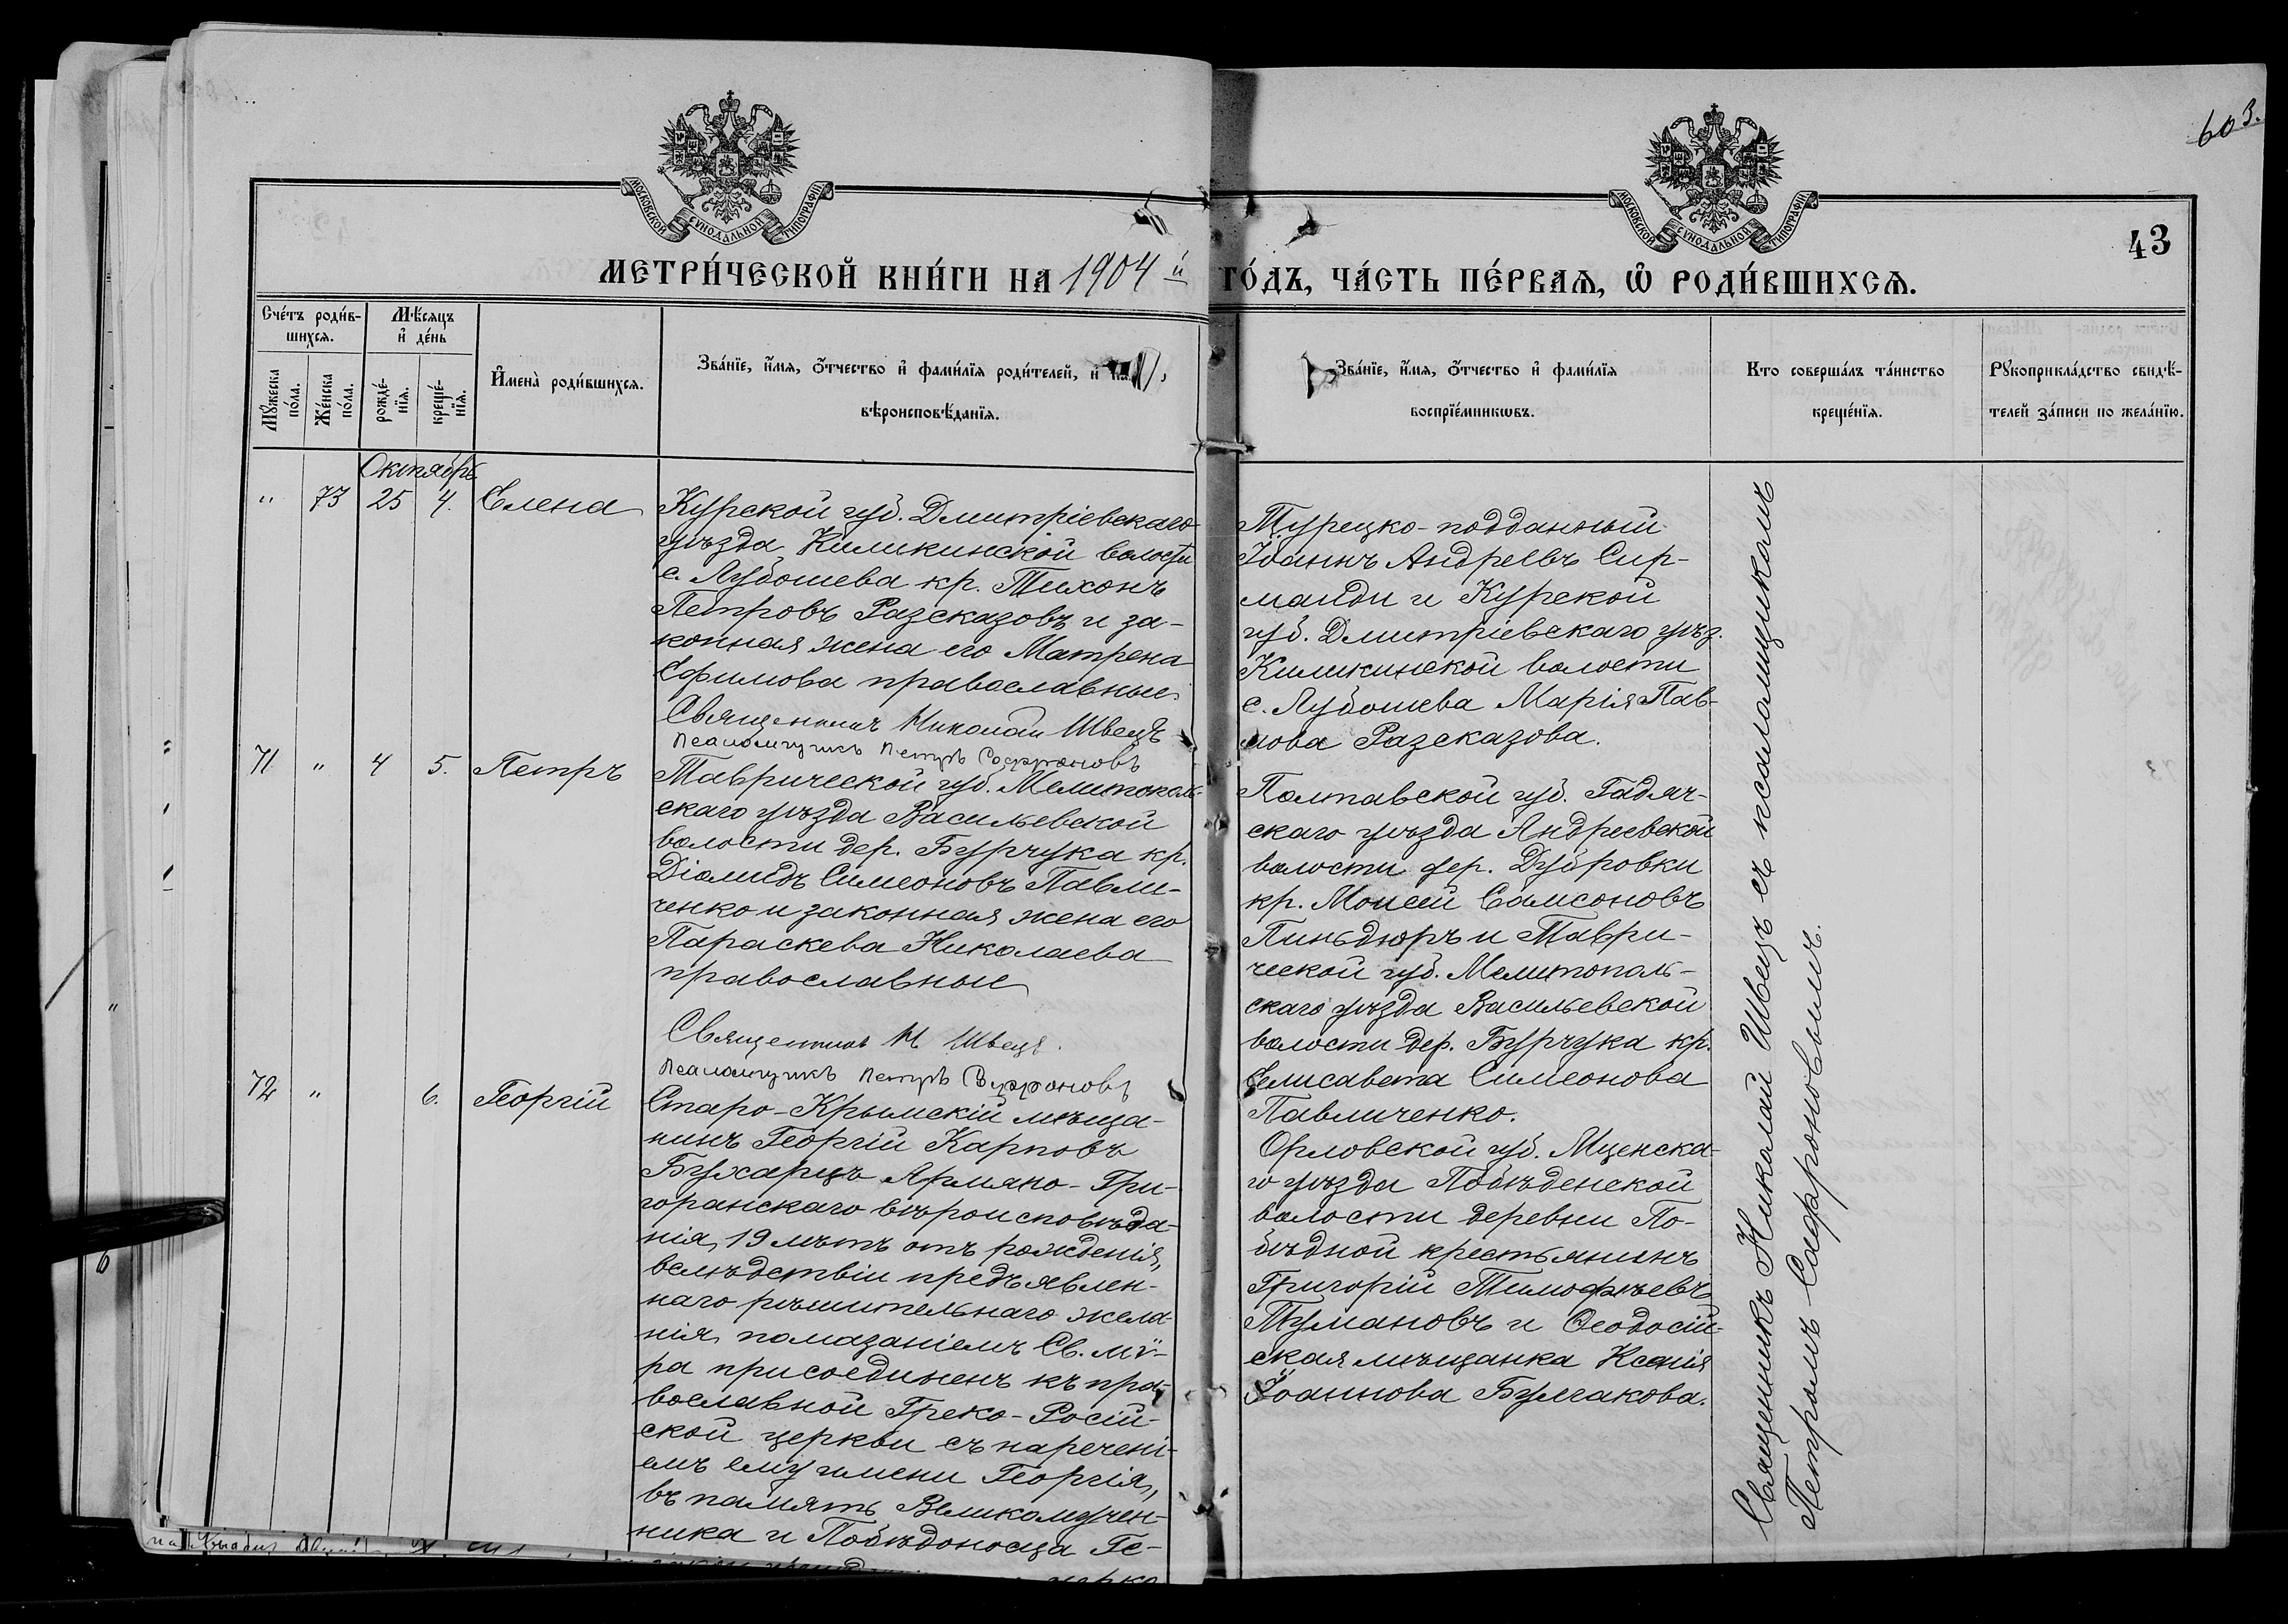 603.
МОСКОВСКОЙ СѴНОДАЛЬНОЙ ТИПОГРАФІИ
МОСКОВСКОЙ СѴНОДАЛЬНОЙ ТИПОГРАФІИ
43
МЕТРИ́ЧЕСКОЙ КНИ́ГИ НА 1904й ГО́ДЪ, ЧА́СТЬ ПЕ́РВАѦ, Ѡ РОДИ́ВШИХСѦ.
Сче́тъ роди́в-
шихсѧ.
Мѣ́сяцъ
и҆ де́нь
Мꙋ́жеска по́ла.
Же́нска по́ла.
рожде́-нїѧ.
креще́-нїѧ.
И҆мена̀ роди́вшихсѧ.
Зва́нїе, и҆́мѧ, ѻ҆́тчество и҆ фами́лїѧ роди́телей, и҆
вѣроисповѣ́данїѧ.
Зва́нїе, и҆́мѧ, ѻ҆́тчество и҆ фами́лїѧ
воспрїе́мникѡвъ.
Кто соверша́лъ та́инство
креще́нїѧ.
Рꙋкоприкла́дство свидѣ́-
телей за́писи по жела́нїю.
Октябрь
" 73 25 4. Елена
Курской губ. Дмитріевскаго
уѣзда, Киликинской волости
с. Лубошева кр. Тихонъ
Петровъ Разсказовъ и за-
конная жена его Матрена
Ефимова православные.
Священникъ Николай Швецъ
Псаломщикъ Петръ Софроновъ
Турецко-подданный
Іоаннъ Андреевъ Сир-
маиди и Курской
губ. Дмитріевскаго уѣз.
Киликинской волости
с. Лубошева Марія Пав-
лова Разсказова.
71 " 4 5. Петръ
Таврической губ. Мелитополь-
скаго уѣзда Васильевской
волости дер. Бурчука кр.
Діомидъ Симеоновъ Павли-
ченко и законная жена его
Параскева Николаева
православные
Священникъ Н Швецъ.
Псаломщикъ Петръ Софроновъ
Полтавской губ. Гадяч-
скаго уѣзда Андреевской
волости дер. Дубровки
кр. Моисей Самсоновъ
Пиньдюръ и Таври-
ческой губ. Мелитополь-
скаго уѣзда Васильевской
волости дер. Бурчука кр.
Елисавета Симеонова
Павличенко.
72 " 6. Георгій
Старо-Крымскій мѣща-
нинъ Георгій Карповъ
Бухарцъ Армяно-Гри-
горанскаго вѣроисповѣда-
нія, 19 лѣтъ отъ рожденія,
вслѣдствіи предъявлен-
наго рѣшительнаго жела-
нія, помазаніемъ Св. мѵ-
ра присоединенъ къ пра-
вославной Греко-Росій-
ской церкви съ наречені-
емъ ему имени Георгія,
въ память Великомучен-
ника и Побѣдоносца Ге-
Орловской губ. Мценска-
го уѣзда Побѣденской
волости деревни По-
бѣдной крестьянинъ
Григорій Тимофѣевъ
Тумановъ и Ѳеодосій-
ская мѣщанка Ксенія
Іоаннова Булгакова.
Священникъ Николай Швецъ съ псаломщикомъ
Петромъ Сафроновымъ.